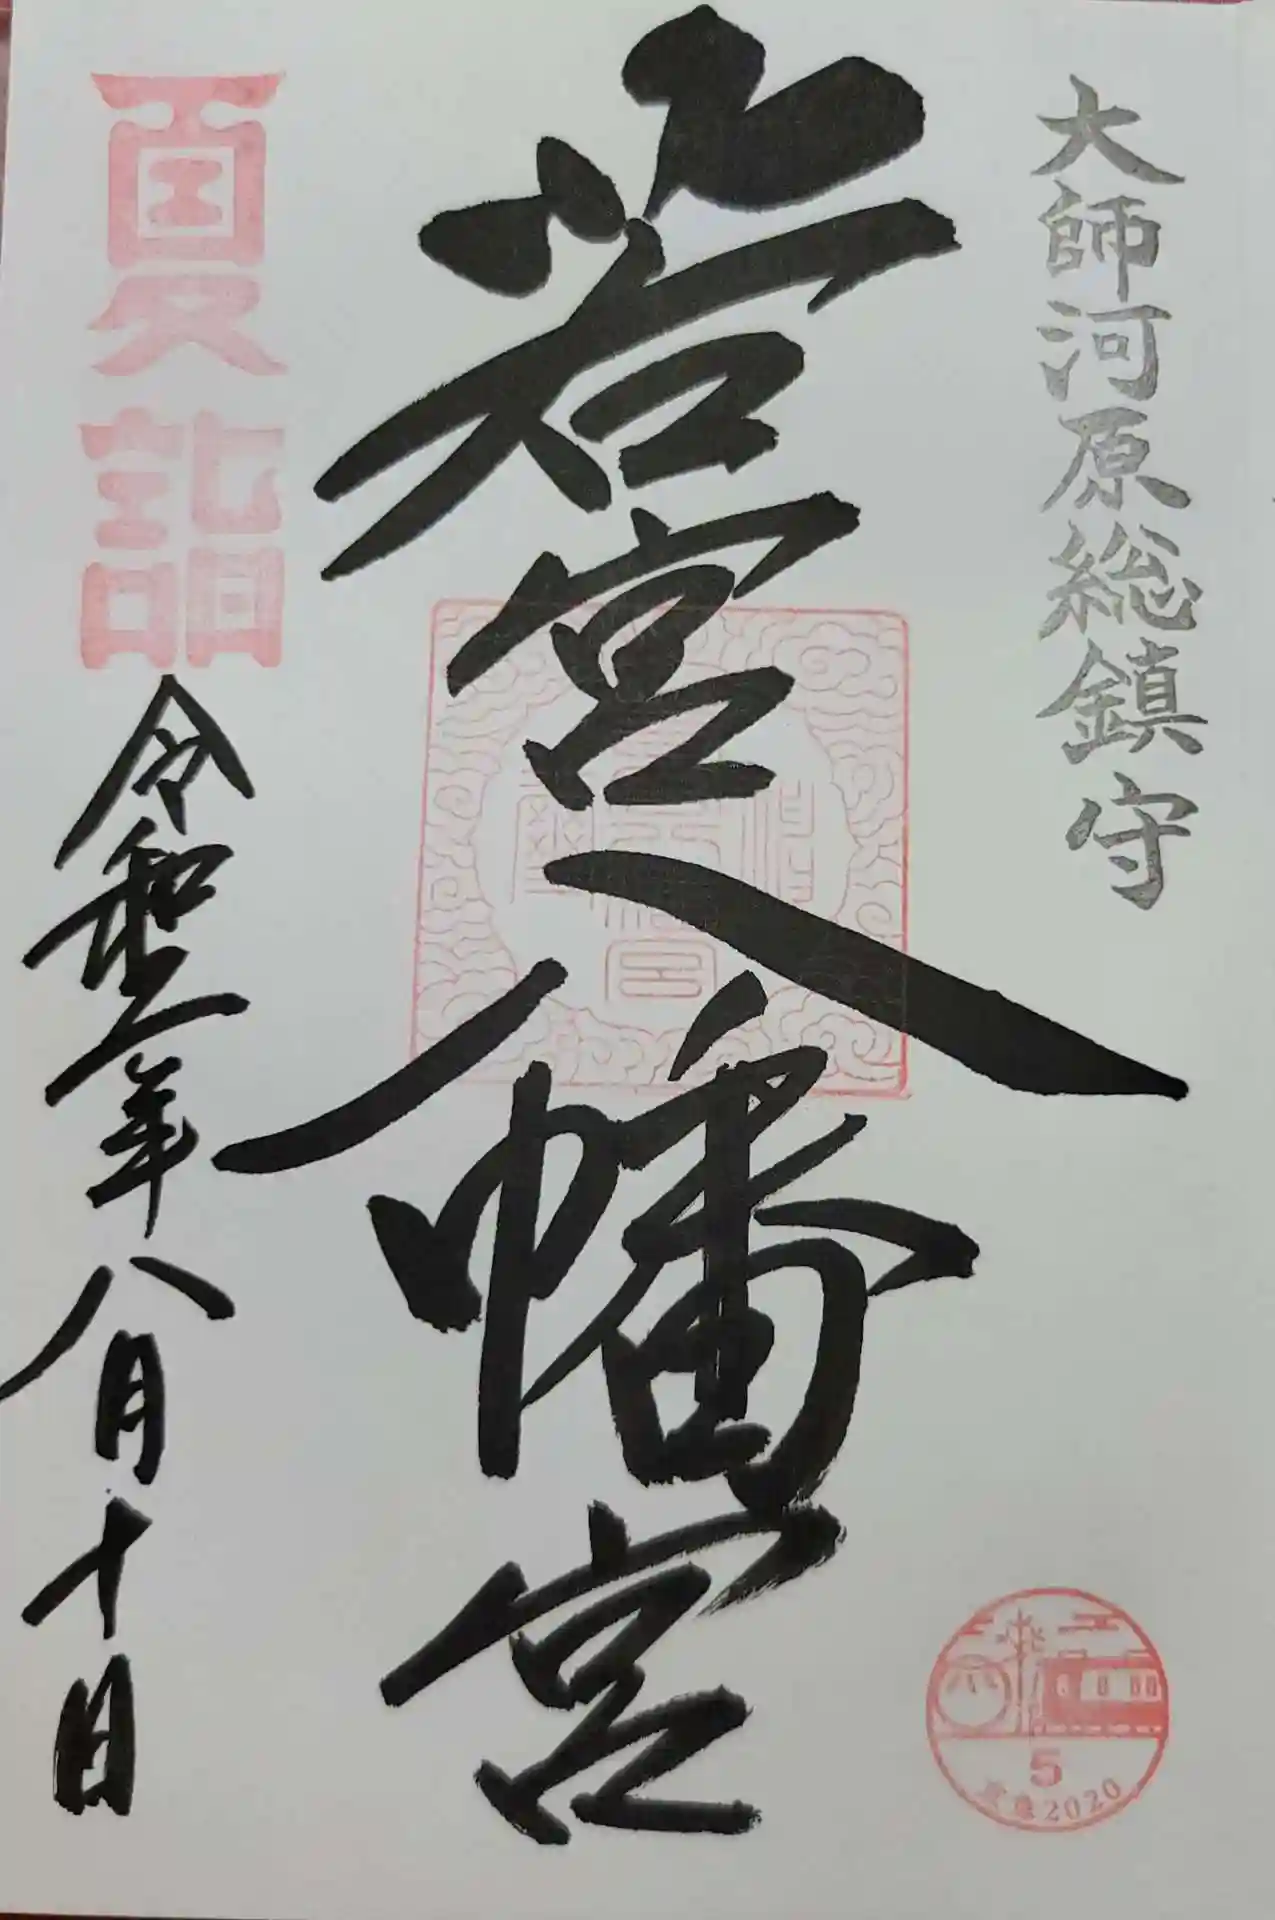 大師河原総鎮守
若宮八幡宮
夏詣
令和二年八月十日
5
2020